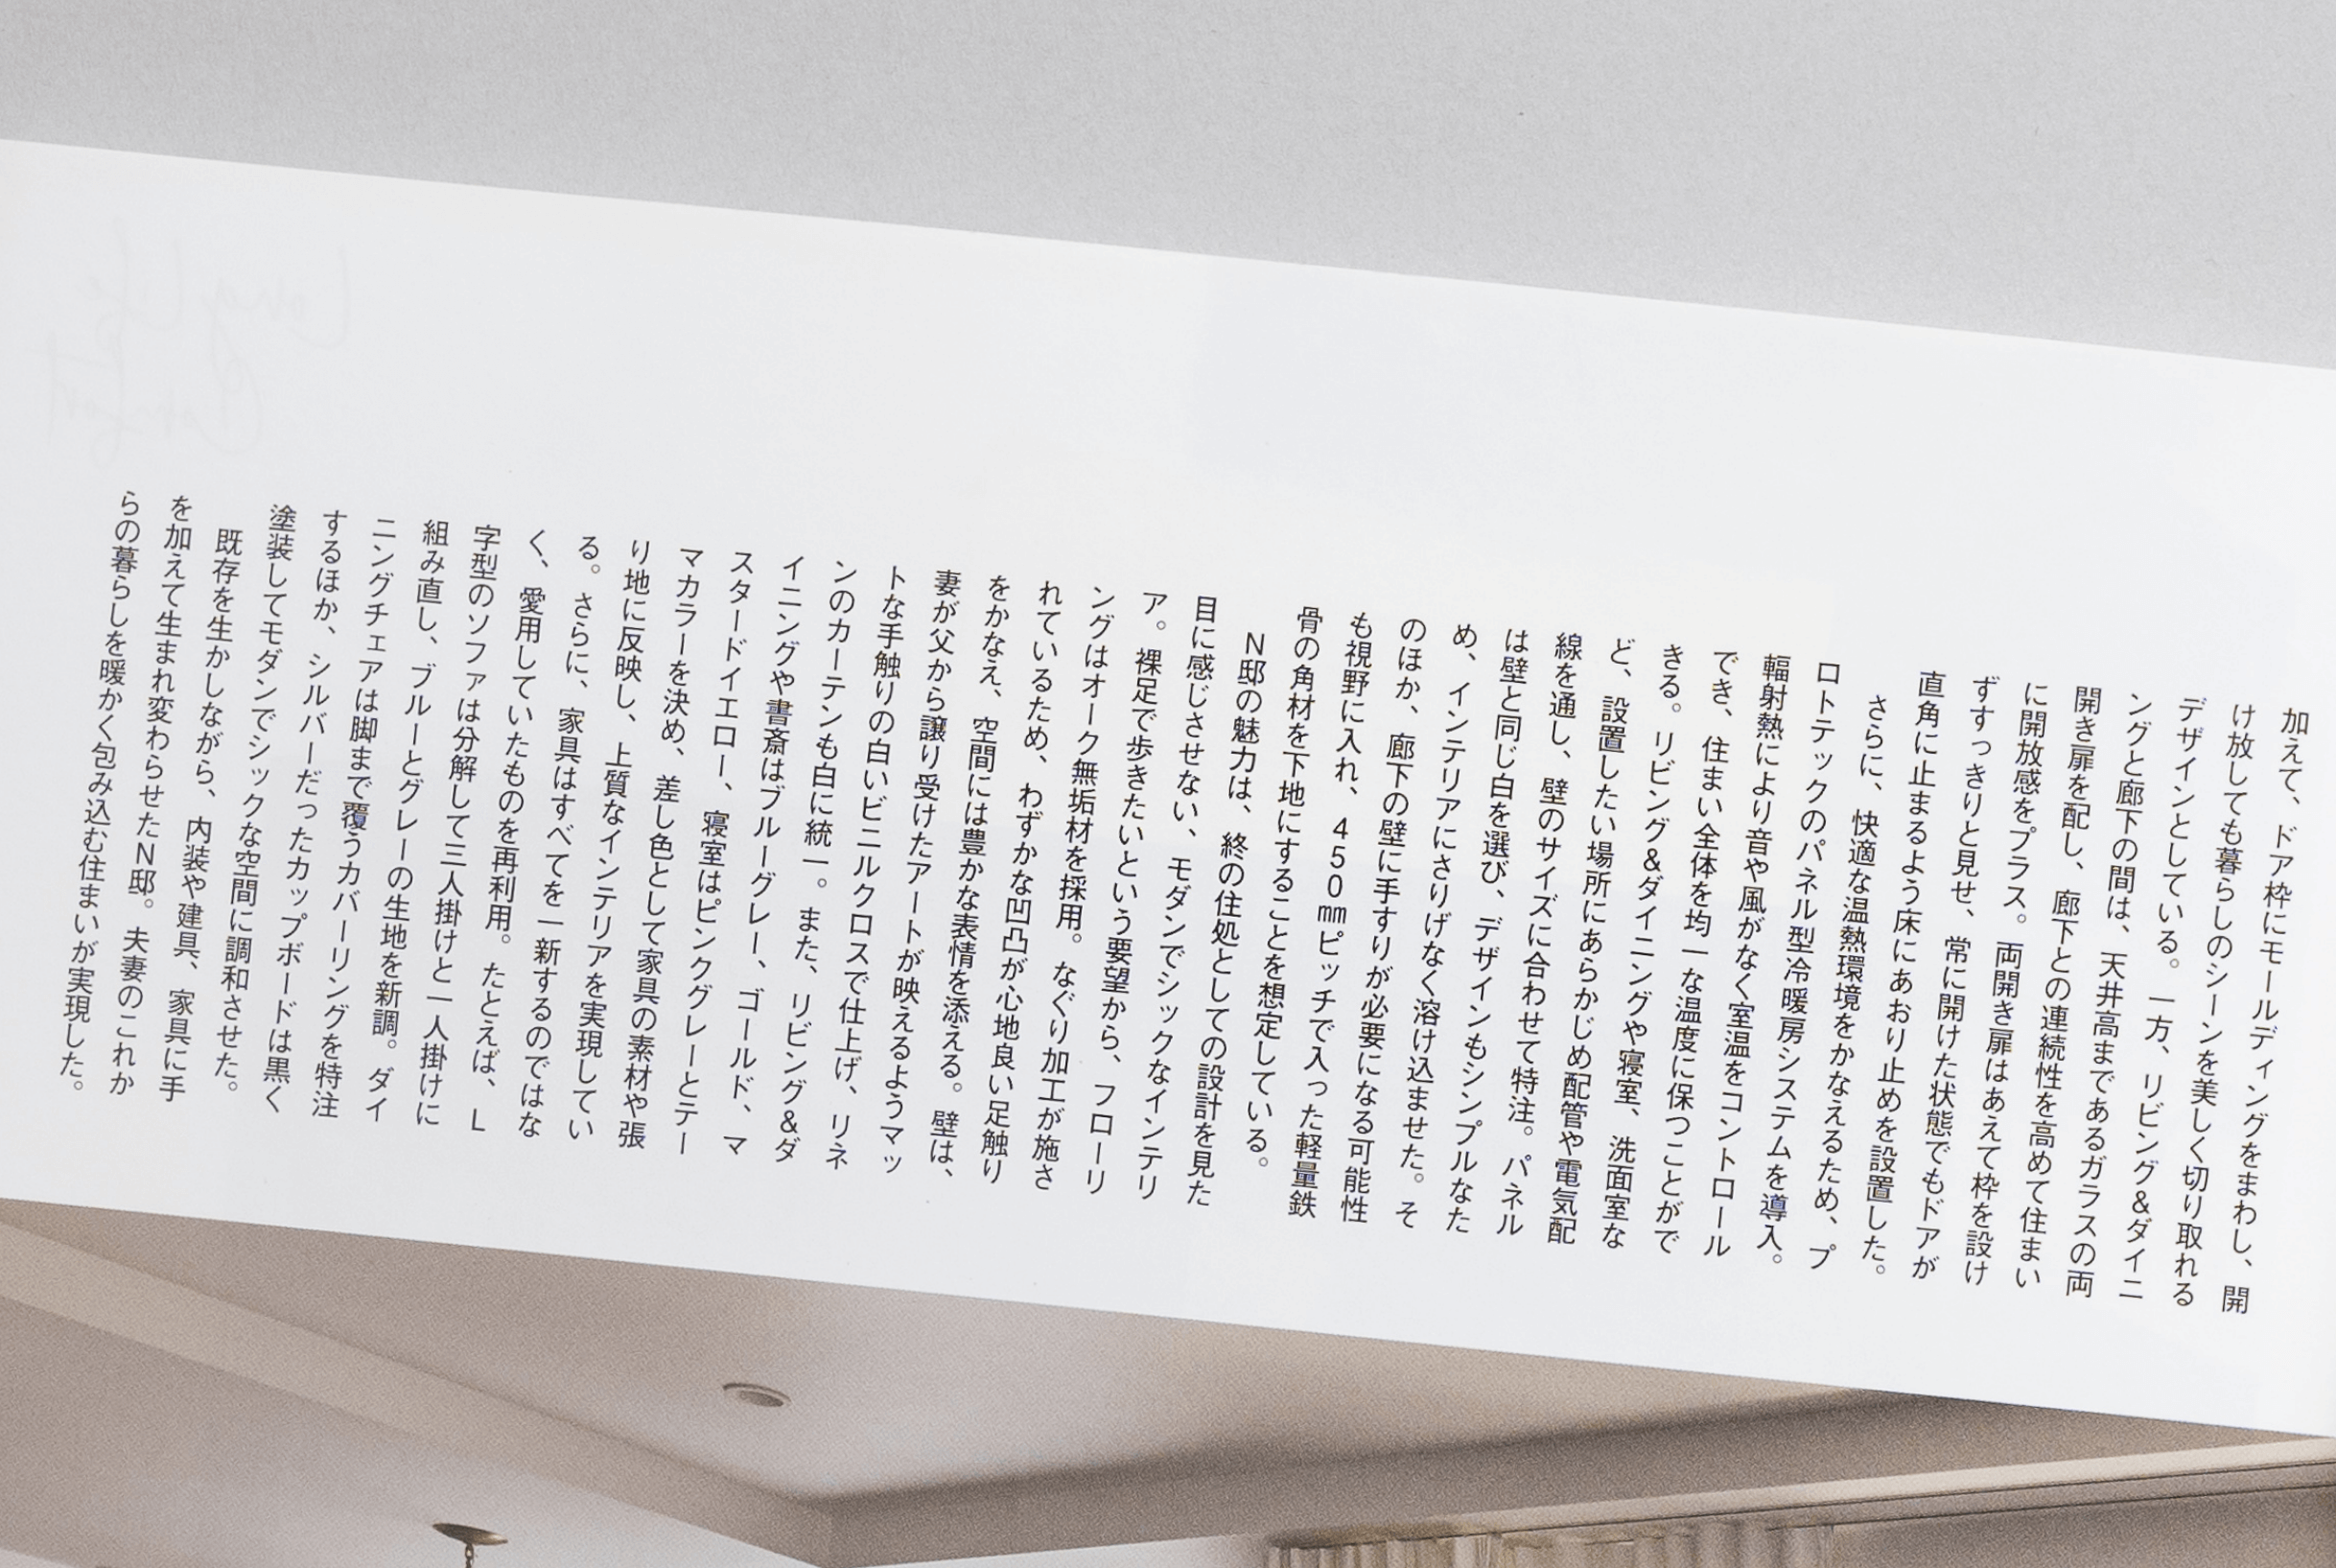 加えて、ドア枠にモールディングをまわし、開
け放しても暮らしのシーンを美しく切り取れる
デザインとしている。一方、リビング&ダイニ
ングと廊下の間は、天井高まであるガラスの両
開き扉を配し、廊下との連続性を高めて住まい
に開放感をプラス。両開き扉はあえて枠を設け
ずすっきりと見せ、常に開けた状態でもドアが
直角に止まるよう床にあおり止めを設置した。
さらに、快適な温熱環境をかなえるため、プ
ロトテックのパネル型冷暖房システムを導入。
輻射熱により音や風がなく室温をコントロール
でき、住まい全体を均一な温度に保つことがで
きる。リビング&ダイニングや寝室、洗面室な
ど、設置したい場所にあらかじめ配管や電気配
線を通し、壁のサイズに合わせて特注。パネル
は壁と同じ白を選び、デザインもシンプルなた
め、インテリアにさりげなく溶け込ませた。そ
のほか、廊下の壁に手すりが必要になる可能性
も視野に入れ、450㎜ピッチで入った軽量鉄
骨の角材を下地にすることを想定している。
N邸の魅力は、終の住処としての設計を見た
目に感じさせない、モダンでシックなインテリ
ア。裸足で歩きたいという要望から、フローリ
ングはオーク無垢材を採用。なぐり加工が施さ
れているため、わずかな凹凸が心地良い足触り
をかなえ、空間には豊かな表情を添える。壁は、
妻が父から譲り受けたアートが映えるようマッ
トな手触りの白いビニルクロスで仕上げ、リネ
ンのカーテンも白に統一。また、リビング&ダ
イニングや書斎はブルーグレー、ゴールド、マ
スタードイエロー、寝室はピンクグレーとテー
マカラーを決め、差し色として家具の素材や張
り地に反映し、上質なインテリアを実現してい
る。さらに、家具はすべてを一新するのではな
く、愛用していたものを再利用。たとえば、L
字型のソファは分解して三人掛けと一人掛けに
組み直し、ブルーとグレーの生地を新調。ダイ
ニングチェアは脚まで覆うカバーリングを特注
するほか、シルバーだったカップボードは黒く
塗装してモダンでシックな空間に調和させた。
既存を生かしながら、内装や建具、家具に手
を加えて生まれ変わらせたN邸。夫妻のこれか
らの暮らしを暖かく包み込む住まいが実現した。